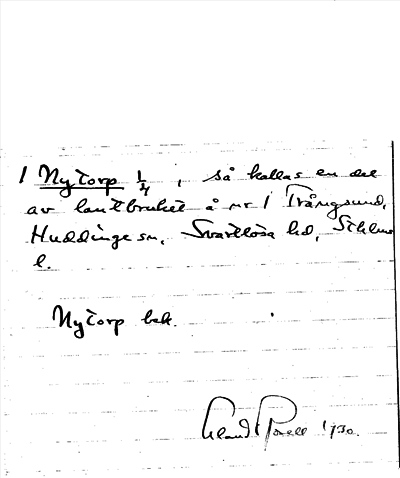 1 Nytorp 1/4, så kallas en del
av lantbruket å nr 1 Trångsund,
Huddinge sn, Svartlösa hd, Sthlms
l.
Nytorp bek.
1930.